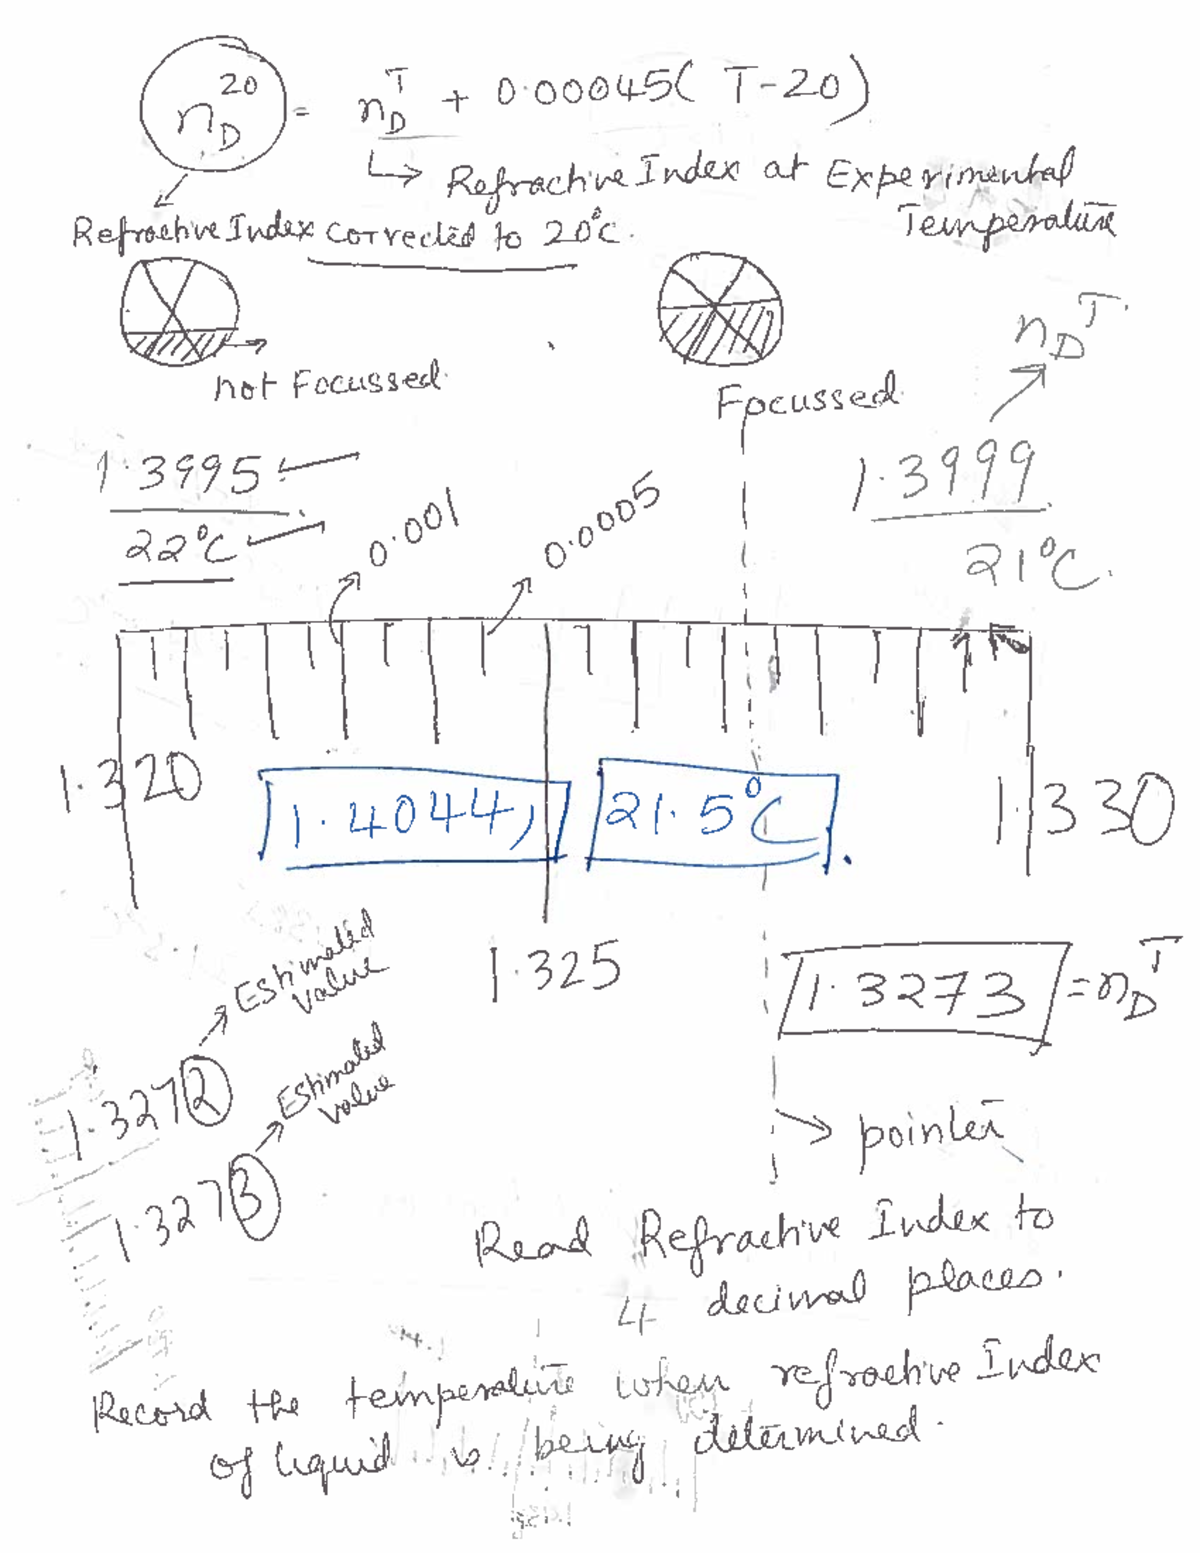 n_D^20 = n_D^T + 0.00045( T-20)
↳ Refractive Index at Experimental
Temperature
Refractive Index corrected to 20°C.
not Focussed.
Focussed.
n_D^T
1.3995
22°C
0.001
0.0005
1.3999
21°C.
1.320
1.4044,
21.5°C.
1.330
1.325
1.3273 = n_D^T
Estimated
value
1.3272
Estimated
value
1.3273
pointer
Read Refractive Index to
4 decimal places.
Record the temperature when refractive Index
of liquid is being determined.